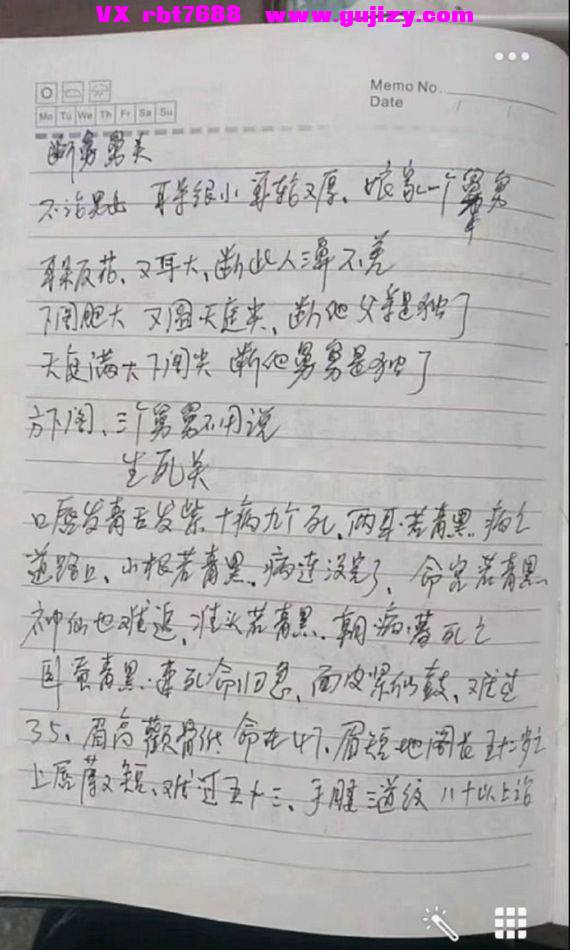 VX rbt7688 www.gujizy.com
Memo No.
Mo Tu We Th Fr Sa Su
Date / /
断舅舅关
不论男女 耳朵很小耳轮又厚、娘家一个舅舅
耳朵反苕、又耳大、断此人三舅不差
下阁胆大 又圆天庭尖、断他父辈是独丁
天庭满大下阁尖 断他舅舅是独丁
方下阁、三个舅舅不用说
生死关
口唇发青舌发紫 十病九个死、两耳若青黑、病亡
道路上、小根若青黑、病连没完了、命宫若青黑
神仙也难追、准头若青黑、朝病暮死亡
卧蚕青黑、毒死命归急、面皮紧似鼓、难过
35、眉高颧骨低 命在47、眉短地阁长 五十二岁亡
上唇薄又短、难过五十三、手腿三道纹 八十以上论